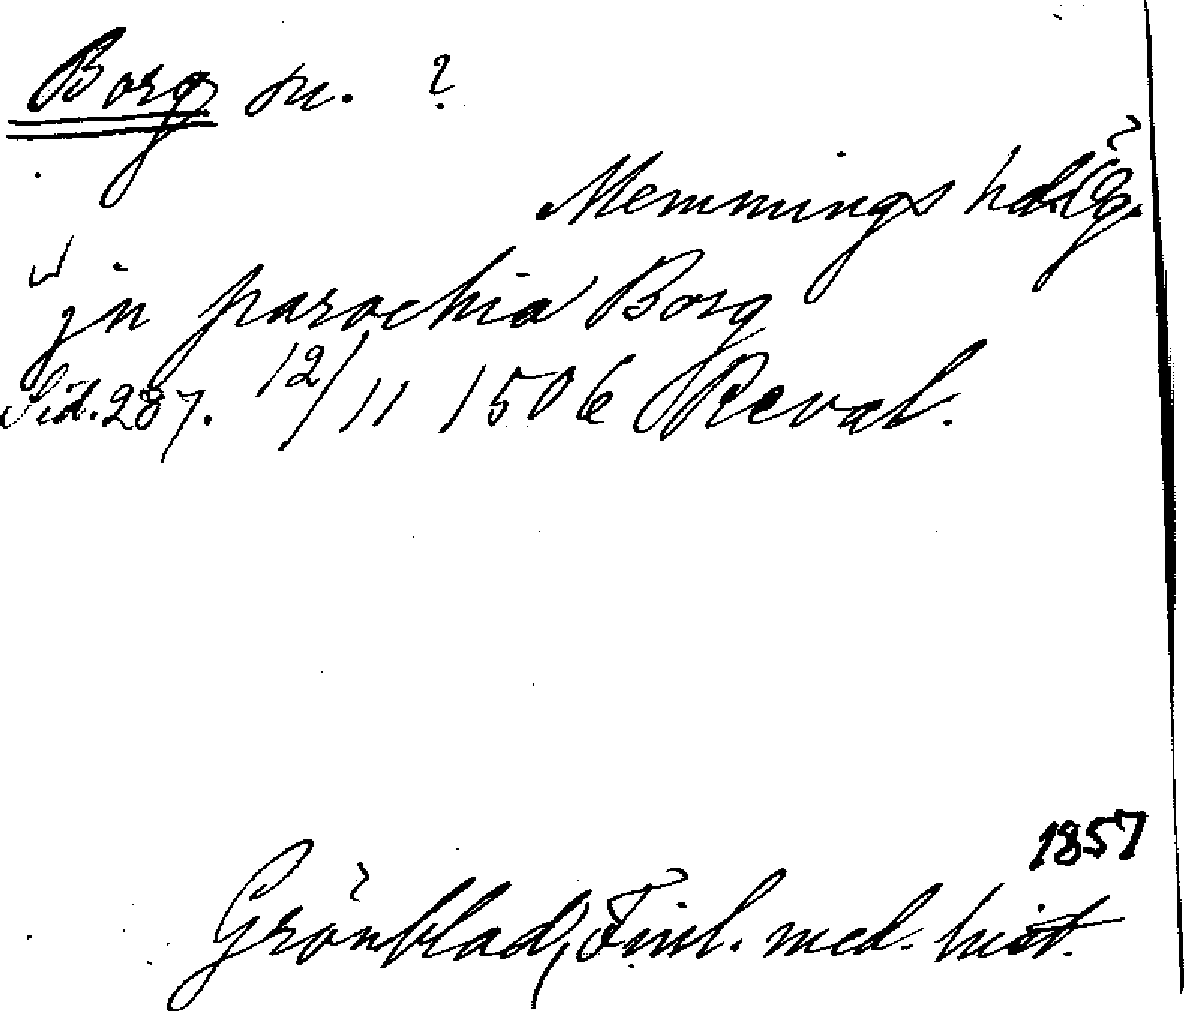 Borg sn. ?
Memmings hd. Ög.
jn parochia Borg
Sid. 287. 12/11 1506 Reval.
1857
Grönblad, Finl. med. hist.